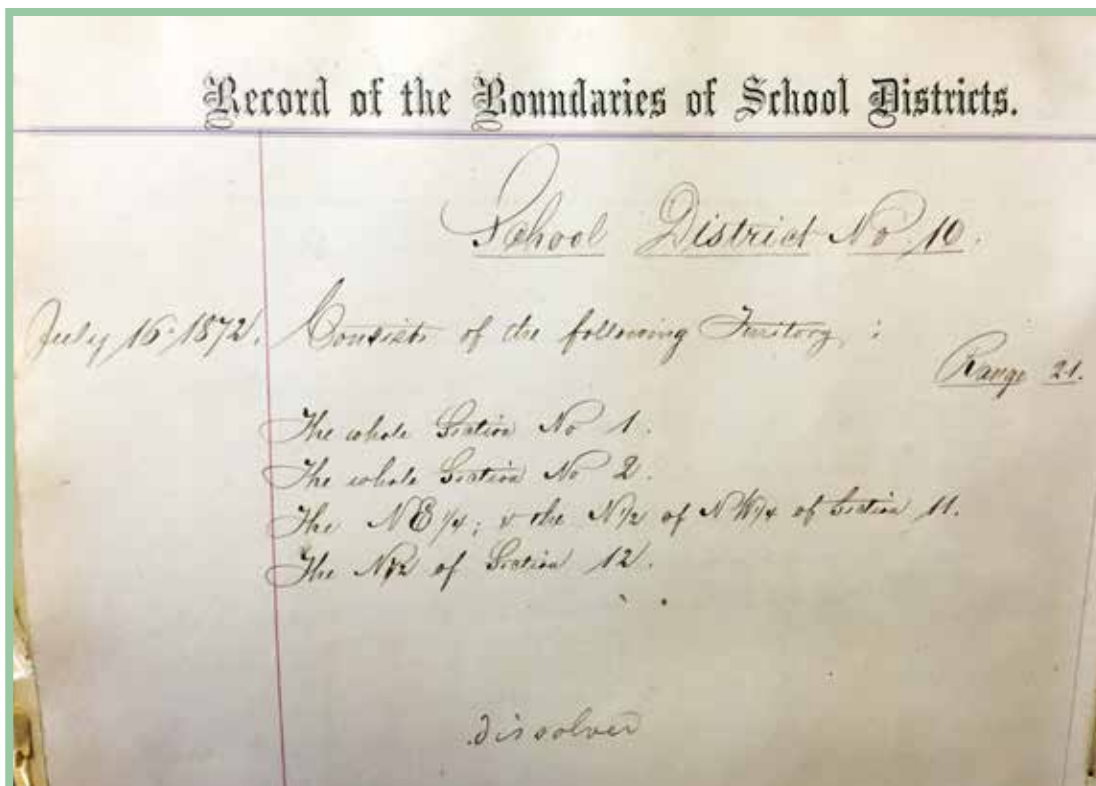 Record of the Boundaries of School Districts.
School District No 10.
July 16th 1872. Consists of the following Territory :
Range 21.
The whole Section No 1.
The whole Section No 2.
The NE 1/4; & the N 1/2 of NW 1/4 of Section 11.
The N 1/2 of Section 12.
dissolved